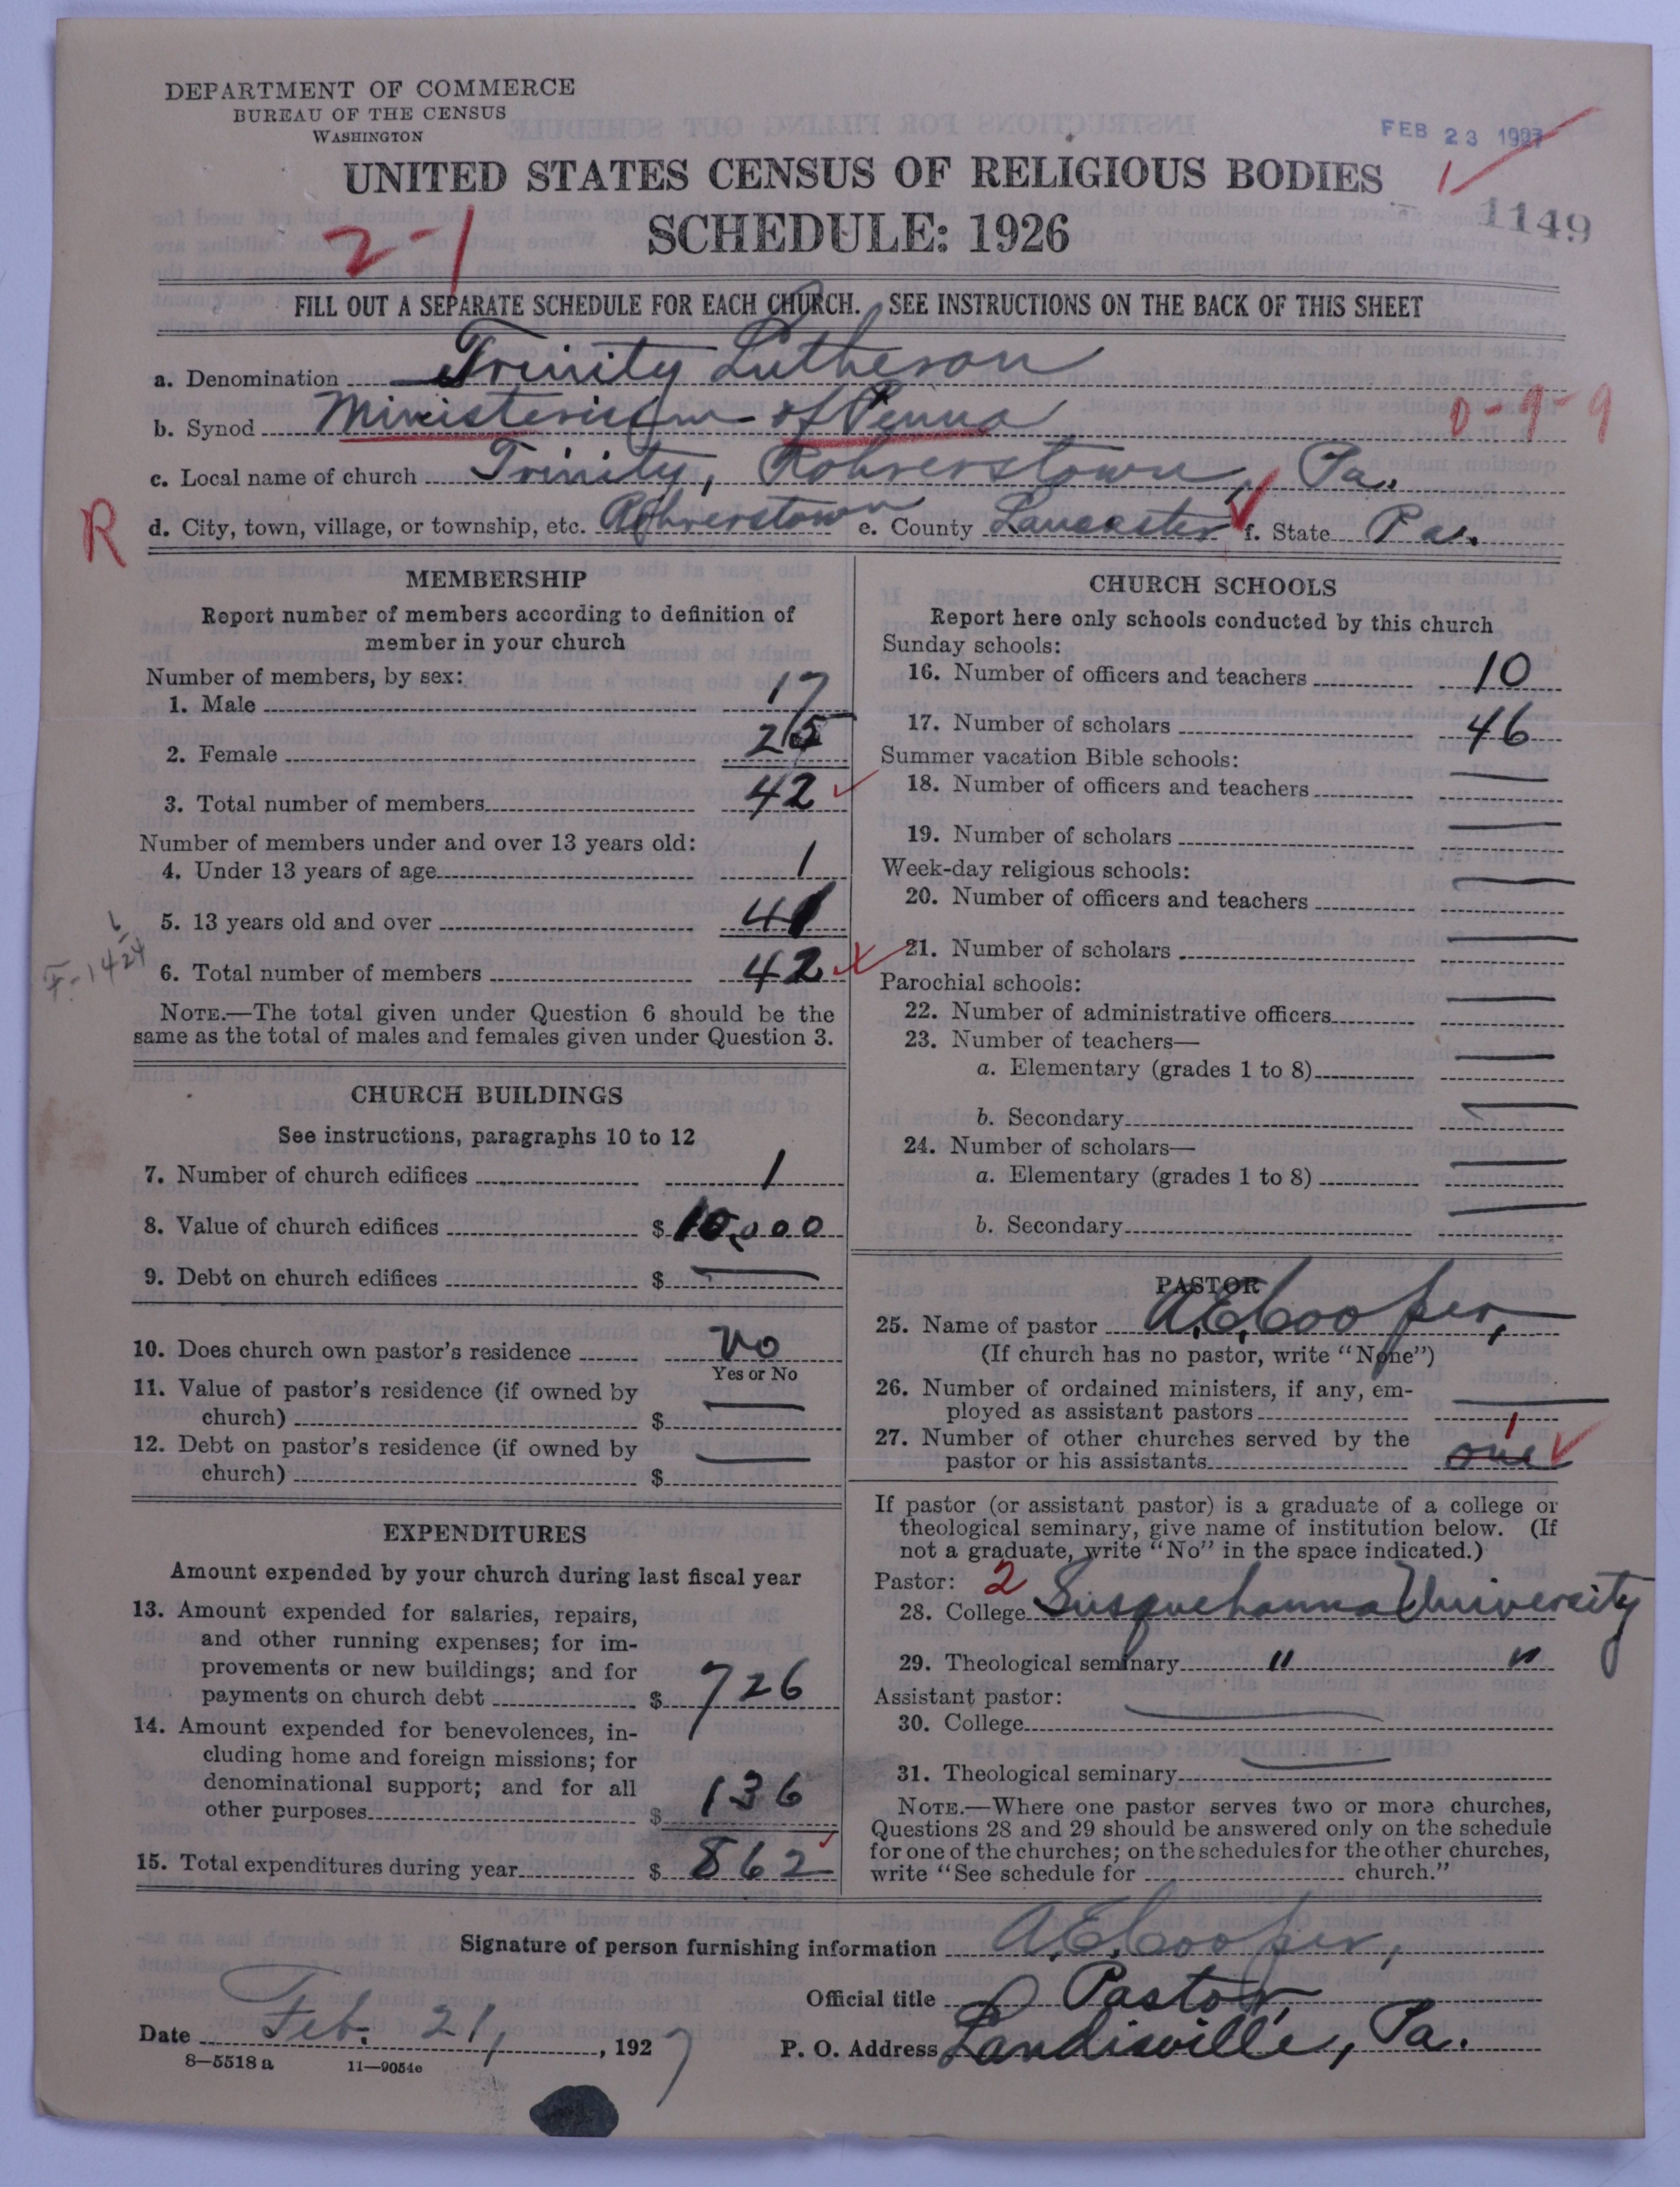 DEPARTMENT OF COMMERCE
BUREAU OF THE CENSUS
WASHINGTON
FEB 23 1927
UNITED STATES CENSUS OF RELIGIOUS BODIES
1
1149
SCHEDULE: 1926
2-1
FILL OUT A SEPARATE SCHEDULE FOR EACH CHURCH. SEE INSTRUCTIONS ON THE BACK OF THIS SHEET
a. Denomination Trinity Lutheran
b. Synod Ministerium of Penna 0-9-9
c. Local name of church Trinity, Rohrerstown, Pa.
R d. City, town, village, or township, etc. Rohrerstown e. County Lancaster f. State Pa.
MEMBERSHIP
Report number of members according to definition of
member in your church
Number of members, by sex:
1. Male 17
2. Female 25
3. Total number of members 42
Number of members under and over 13 years old:
4. Under 13 years of age 1
5. 13 years old and over 41
6. Total number of members 42
NOTE.—The total given under Question 6 should be the
same as the total of males and females given under Question 3.
CHURCH BUILDINGS
See instructions, paragraphs 10 to 12
7. Number of church edifices 1
8. Value of church edifices $10,000
9. Debt on church edifices $ —
10. Does church own pastor's residence No
Yes or No
11. Value of pastor's residence (if owned by
church) $ —
12. Debt on pastor's residence (if owned by
church) $ —
EXPENDITURES
Amount expended by your church during last fiscal year
13. Amount expended for salaries, repairs,
and other running expenses; for im-
provements or new buildings; and for
payments on church debt $ 726
14. Amount expended for benevolences, in-
cluding home and foreign missions; for
denominational support; and for all
other purposes $ 136
15. Total expenditures during year $ 862
CHURCH SCHOOLS
Report here only schools conducted by this church
Sunday schools:
16. Number of officers and teachers 10
17. Number of scholars 46
Summer vacation Bible schools:
18. Number of officers and teachers —
19. Number of scholars —
Week-day religious schools:
20. Number of officers and teachers —
21. Number of scholars —
Parochial schools:
22. Number of administrative officers —
23. Number of teachers—
a. Elementary (grades 1 to 8) —
b. Secondary —
24. Number of scholars—
a. Elementary (grades 1 to 8) —
b. Secondary —
PASTOR
25. Name of pastor A.E. Cooper,
(If church has no pastor, write "None")
26. Number of ordained ministers, if any, em-
ployed as assistant pastors —
27. Number of other churches served by the 1
pastor or his assistants one
If pastor (or assistant pastor) is a graduate of a college or
theological seminary, give name of institution below. (If
not a graduate, write "No" in the space indicated.)
Pastor: 2
28. College Susquehanna University
29. Theological seminary " "
Assistant pastor:
30. College —
31. Theological seminary —
NOTE.—Where one pastor serves two or more churches,
Questions 28 and 29 should be answered only on the schedule
for one of the churches; on the schedules for the other churches,
write "See schedule for church."
Signature of person furnishing information A.E. Cooper,
Official title Pastor,
Date Feb. 21, 1927
P. O. Address Landisville, Pa.
8—5518 a 11—9054c